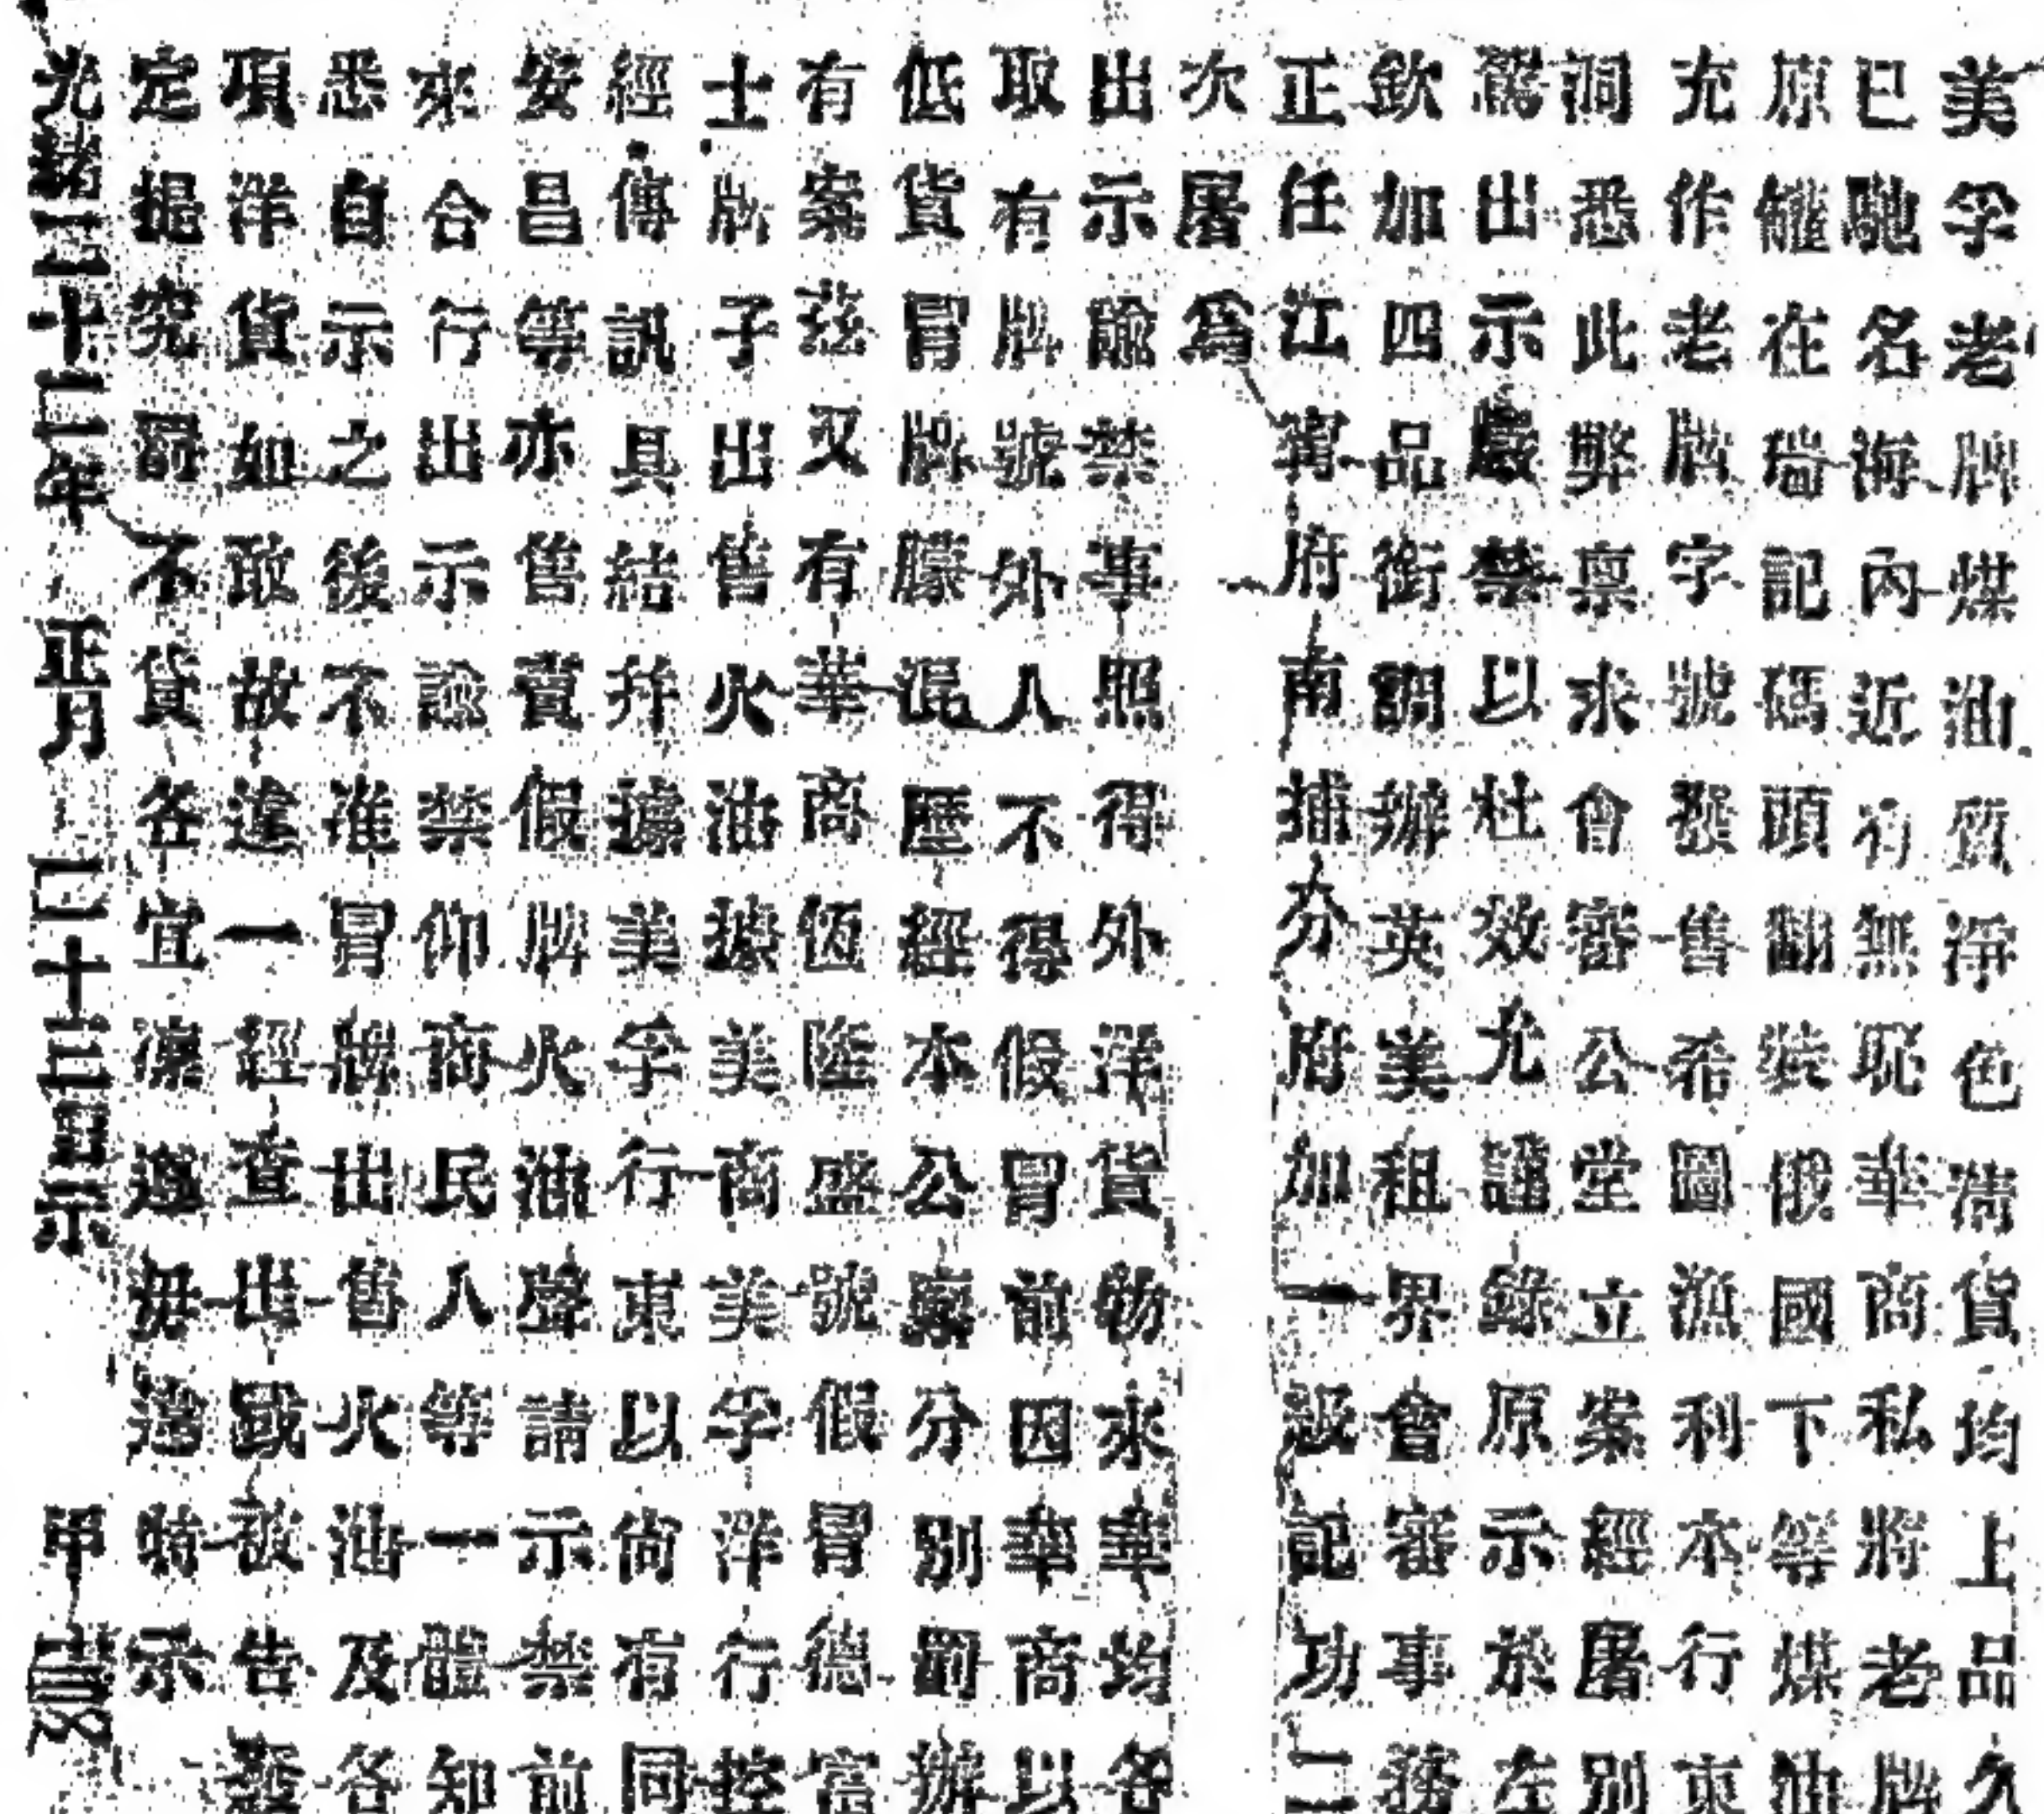 美孚老牌煤油質淨色清貨均上品久
已馳名海內近有無恥華商私將老牌
原罐在瑞記碼頭翻裝俄國下等煤油
充作老牌字號發售希圖漁利本行東
洞悉此弊稟求會審公堂立案經屠別
駕出示嚴禁以杜效尤謹錄原示於左
欽加四品銜調辦英美租界會審事務
正任江甯府南捕分府加一級記功二
次屠為
出示諭禁事照得外洋貨物來華均各
取有牌號外人不得假冒前因華商以
低貨冒牌朦混歷經本公廨分別罰辦
有案茲又有華商恆隆盛號假冒德富
士牌子出售火油據美商美孚洋行控
經傳訊具結幷據美孚行東以尚有同
安昌等亦售賣假牌火油聲請示禁前
來合行出示諭禁仰商民人等一體知
悉自示之後不准冒牌出售火油及各
項洋貨如敢故違一經查出或被告發
定提究罰不貸各宜凜遵毋違特示
光緒二十二年 正月 二十三日示 甲